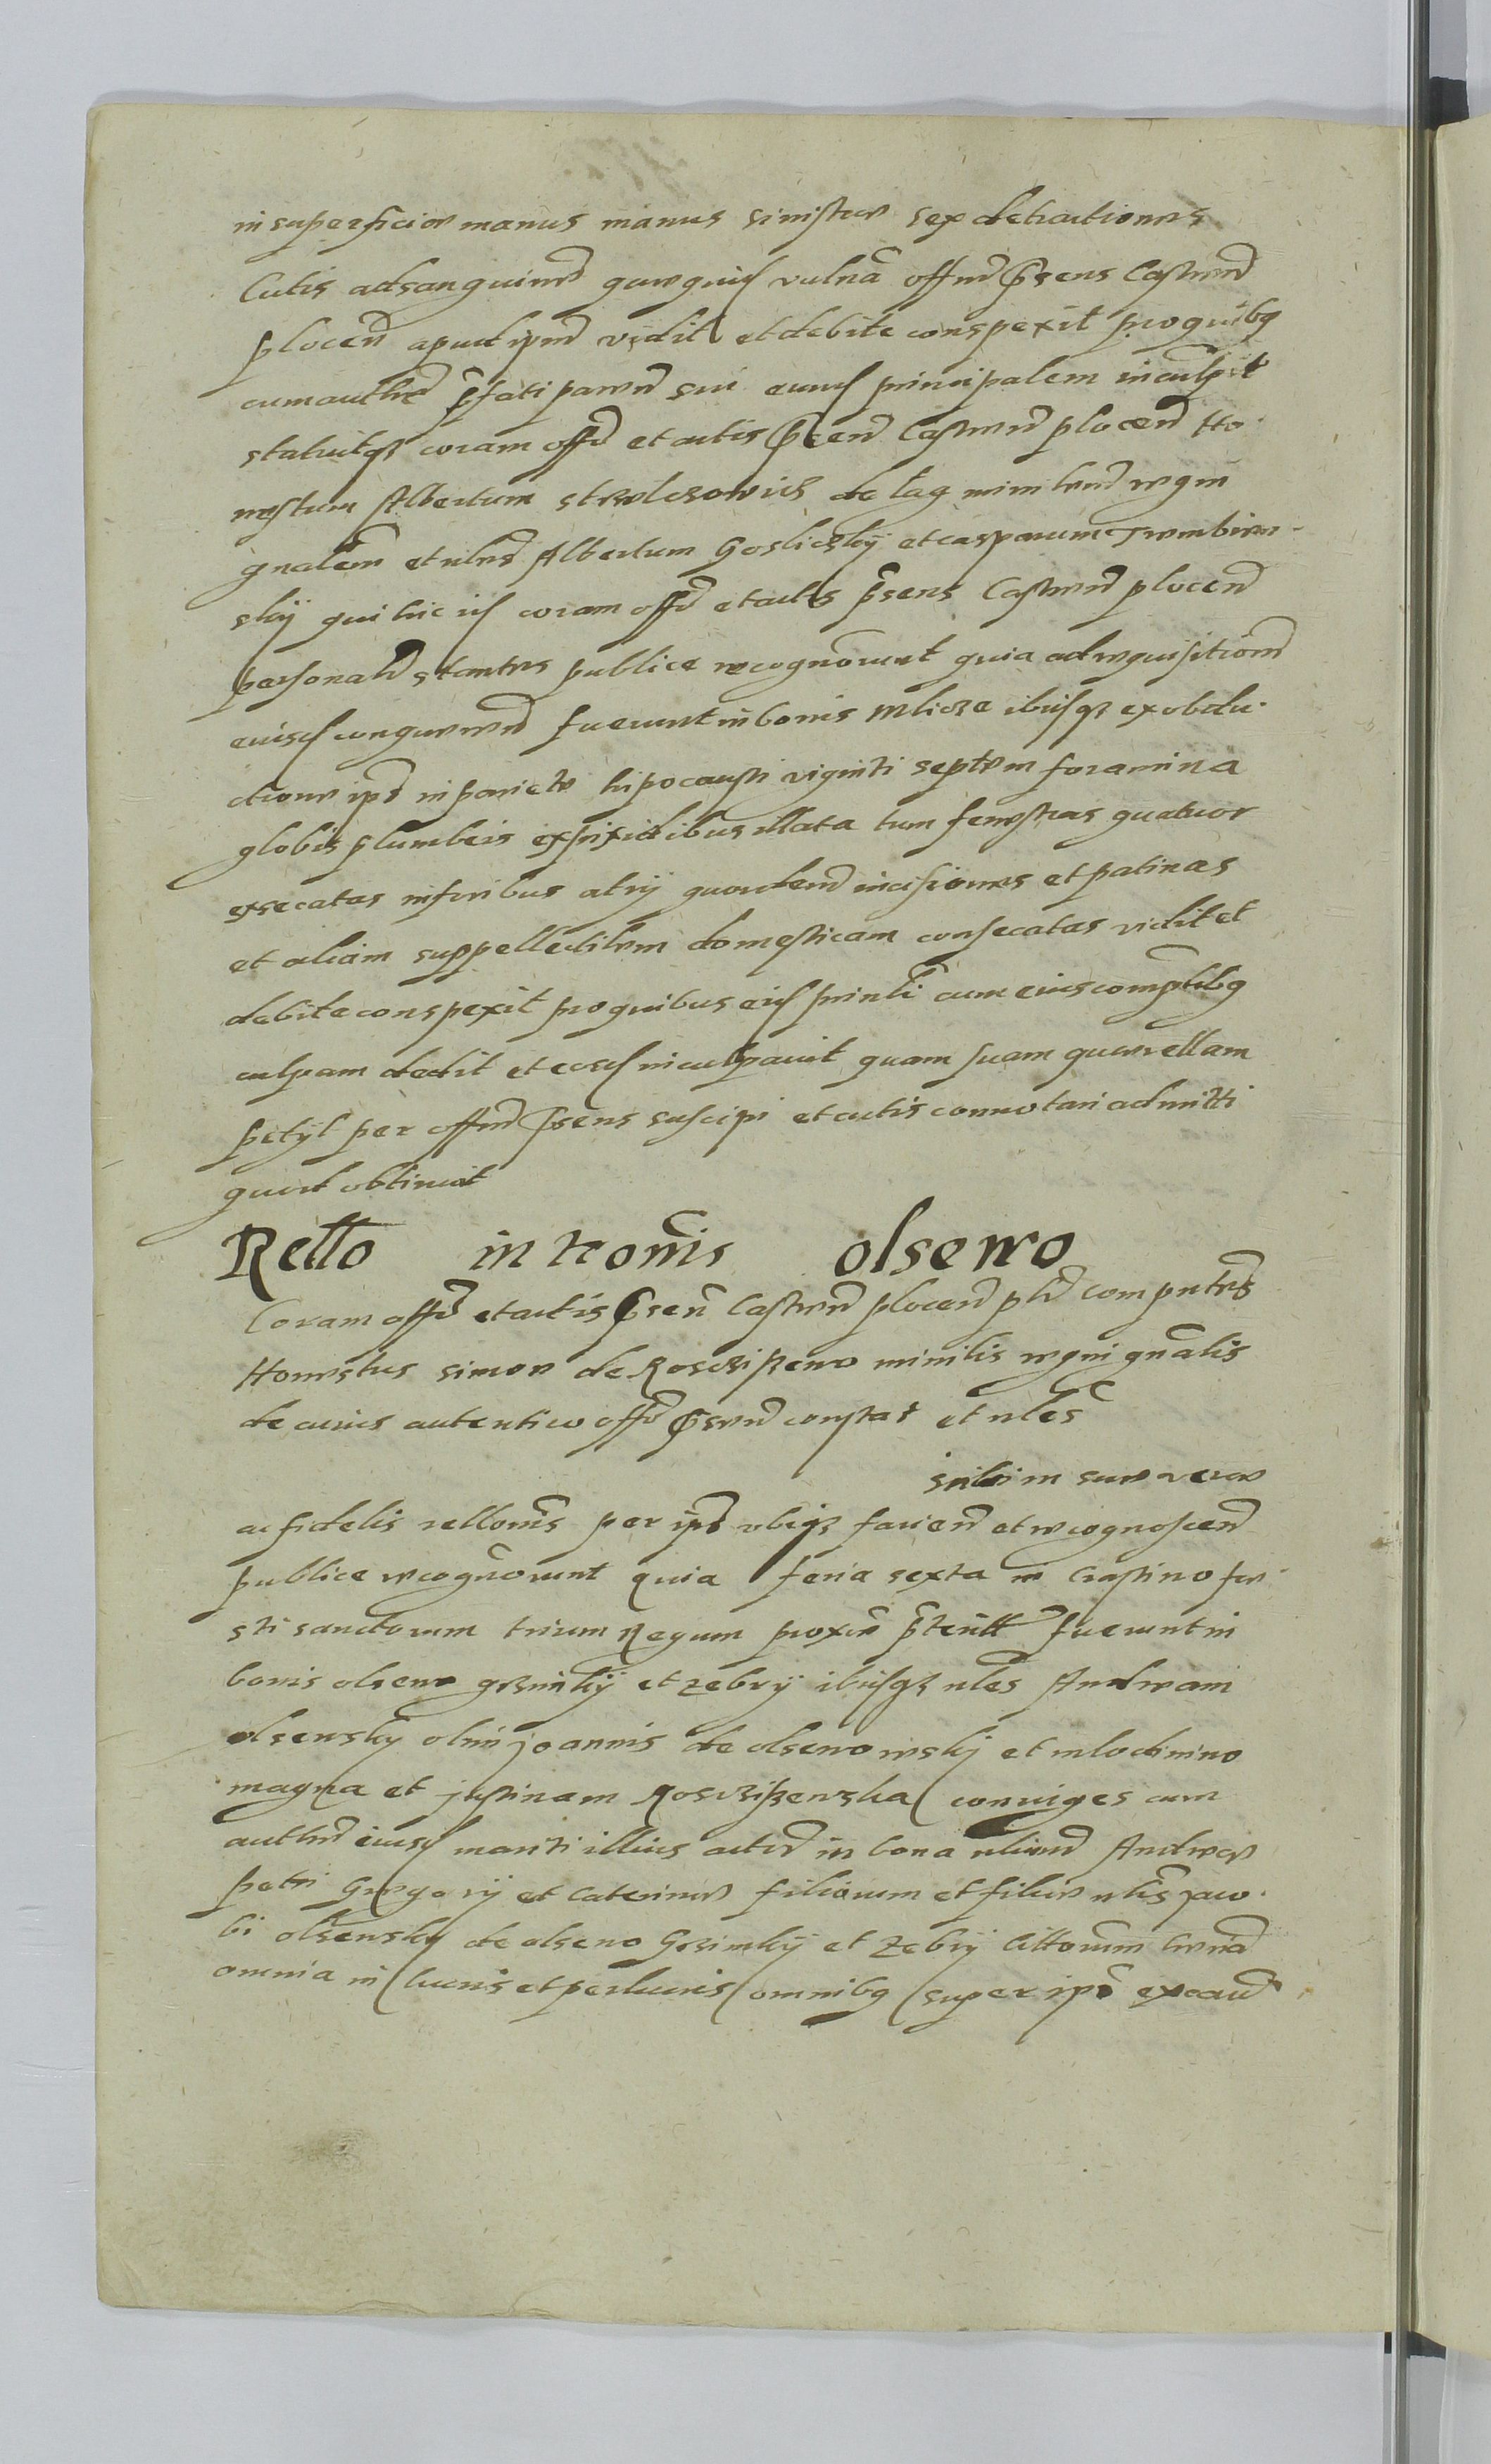 in superficie manus manus sinistre sex detractiones
Cutis ad sanguinem que quid vulna offm prsens Castren
plocen apud ipm vidit et debite conspexit pro quibq
cum authe prfati paren sui eund principalem inculpt
statuitqz coram offo et actis prcen Castren plocen Ho
nestum Albertum strelczowicz de Lag ministren regni
gnalem et nlns Albertum Gosliczky et casparum Trembiew-
sky qui hic id coram offo et actis prsens Castren plocen
personalr stantes publice recognorunt quia ad requisitionem
eiusd conqueren fuerunt in bonis Mlicze ibidqz ex obdu
ctione ipo in pariete hipocausti viginti septem foramina
globis plumbeis ex pixidibus illata tum fenestras quatuor
exsecatas in foribus atrij quasdem incisiones et patinas
et aliam suppellectilem domesticam consecatas vidit et
debite conspexit pro quibus eid prinli cum eius complibq
culpam dedit et eosd inculpavit quam suam querellam
petijt per offm prsens suscipi et actis connotari admitti
quod obtinuit
Rello intromis olsewo
Coram offo et actis prsen Castren plocen plr comparntes
Honestus simon de Rosczissewo minilis regni gnalis
de cuius autentico offo prsen constat et nles
inibim sue vere
ac fidelis rellonis per ipo ubiqz facien et recognoscen
publice recognorunt quia feria sexta in Crastino fe
sti sanctorum trium Regum proxim prterit fuerunt in
bonis olsewo grzimky et zebry ibidqz nles Andream
olsewsky olim joannis de olsewo wsky et mlodinino
magna et justinam Rosczissewska coniuges cum
authe eiusd mariti illius acten in bona nlium Andree
petri Gregorij et Caterine filiorum et filie nlis jaco
bi olsewsky de olsewo Grzimky et Zebry littorum terna
omnia in lucris et perlucris omnibq super ipo ex cau